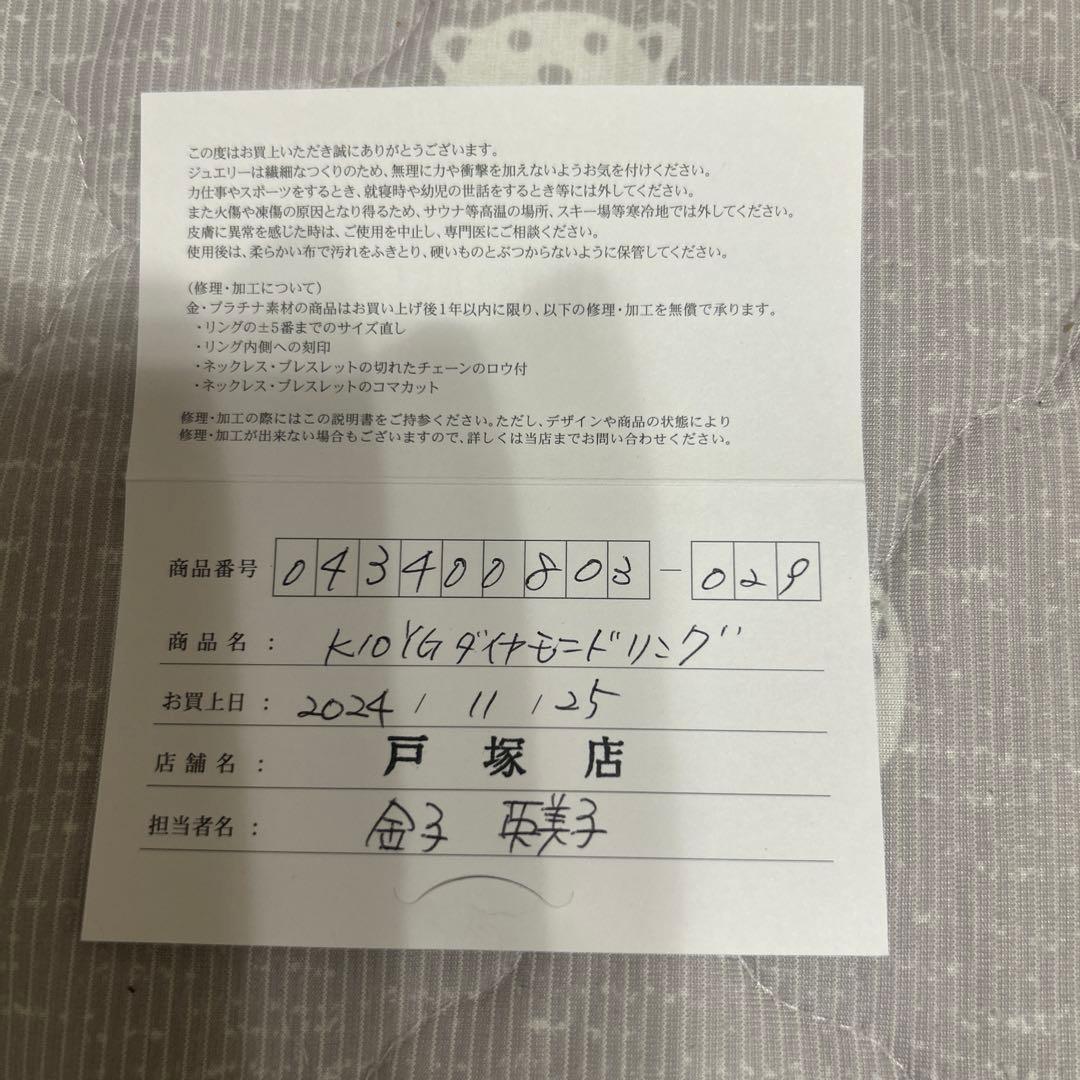 この度はお買上いただき誠にありがとうございます。
ジュエリーは繊細なつくりのため、無理に力や衝撃を加えないようお気を付けください。
力仕事やスポーツをするとき、就寝時や幼児の世話をするとき等には外してください。
また火傷や凍傷の原因となり得るため、サウナ等高温の場所、スキー場等寒冷地では外してください。
皮膚に異常を感じた時は、ご使用を中止し、専門医にご相談ください。
使用後は、柔らかい布で汚れをふきとり、硬いものとぶつからないように保管してください。
(修理・加工について)
金・プラチナ素材の商品はお買い上げ後1年以内に限り、以下の修理・加工を無償で承ります。
・リングの±5番までのサイズ直し
・リング内側への刻印
・ネックレス・ブレスレットの切れたチェーンのロウ付
・ネックレス・ブレスレットのコマカット
修理・加工の際にはこの説明書をご持参ください。ただし、デザインや商品の状態により
修理・加工が出来ない場合もございますので、詳しくは当店までお問い合わせください。
商品番号 043400803-029
商品名： K10YGダイヤモンドリング
お買上日： 2024/11/25
店舗名： 戸塚店
担当者名： 金子 亜美子